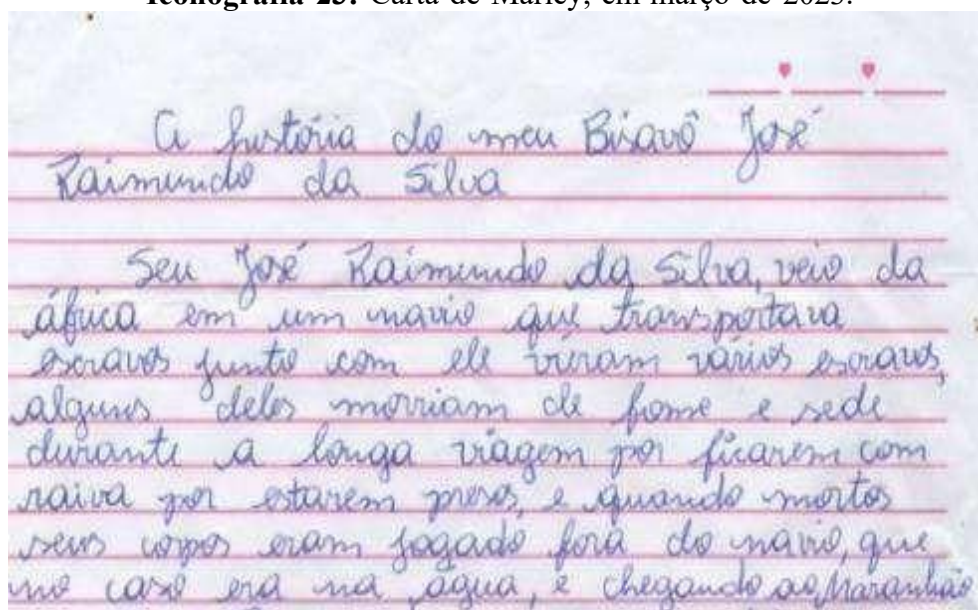 Iconografia 25: Carta de Marley, em março de 2023.
A história do meu Bisavô José
Raimundo da Silva
Seu José Raimundo da Silva, veio da
áfrica em um navio que transportava
escravos junto com ele vieram vários escravos,
alguns deles morriam de fome e sede
durante a longa viagem por ficarem com
raiva por estarem presos, e quando mortos
seus corpos eram jogado fora do navio, que
no caso era na água, e chegando ao Maranhão